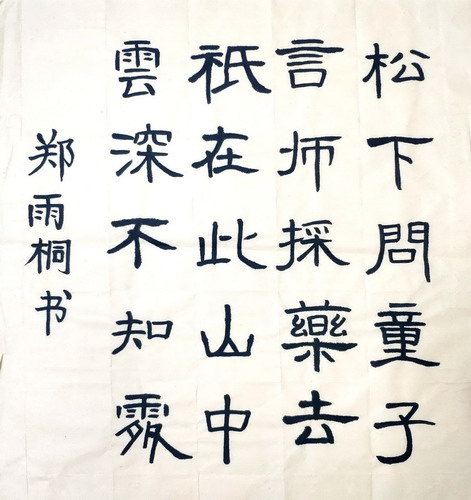 松下問童子
言师採藥去
祇在此山中
雲深不知處
郑雨桐书